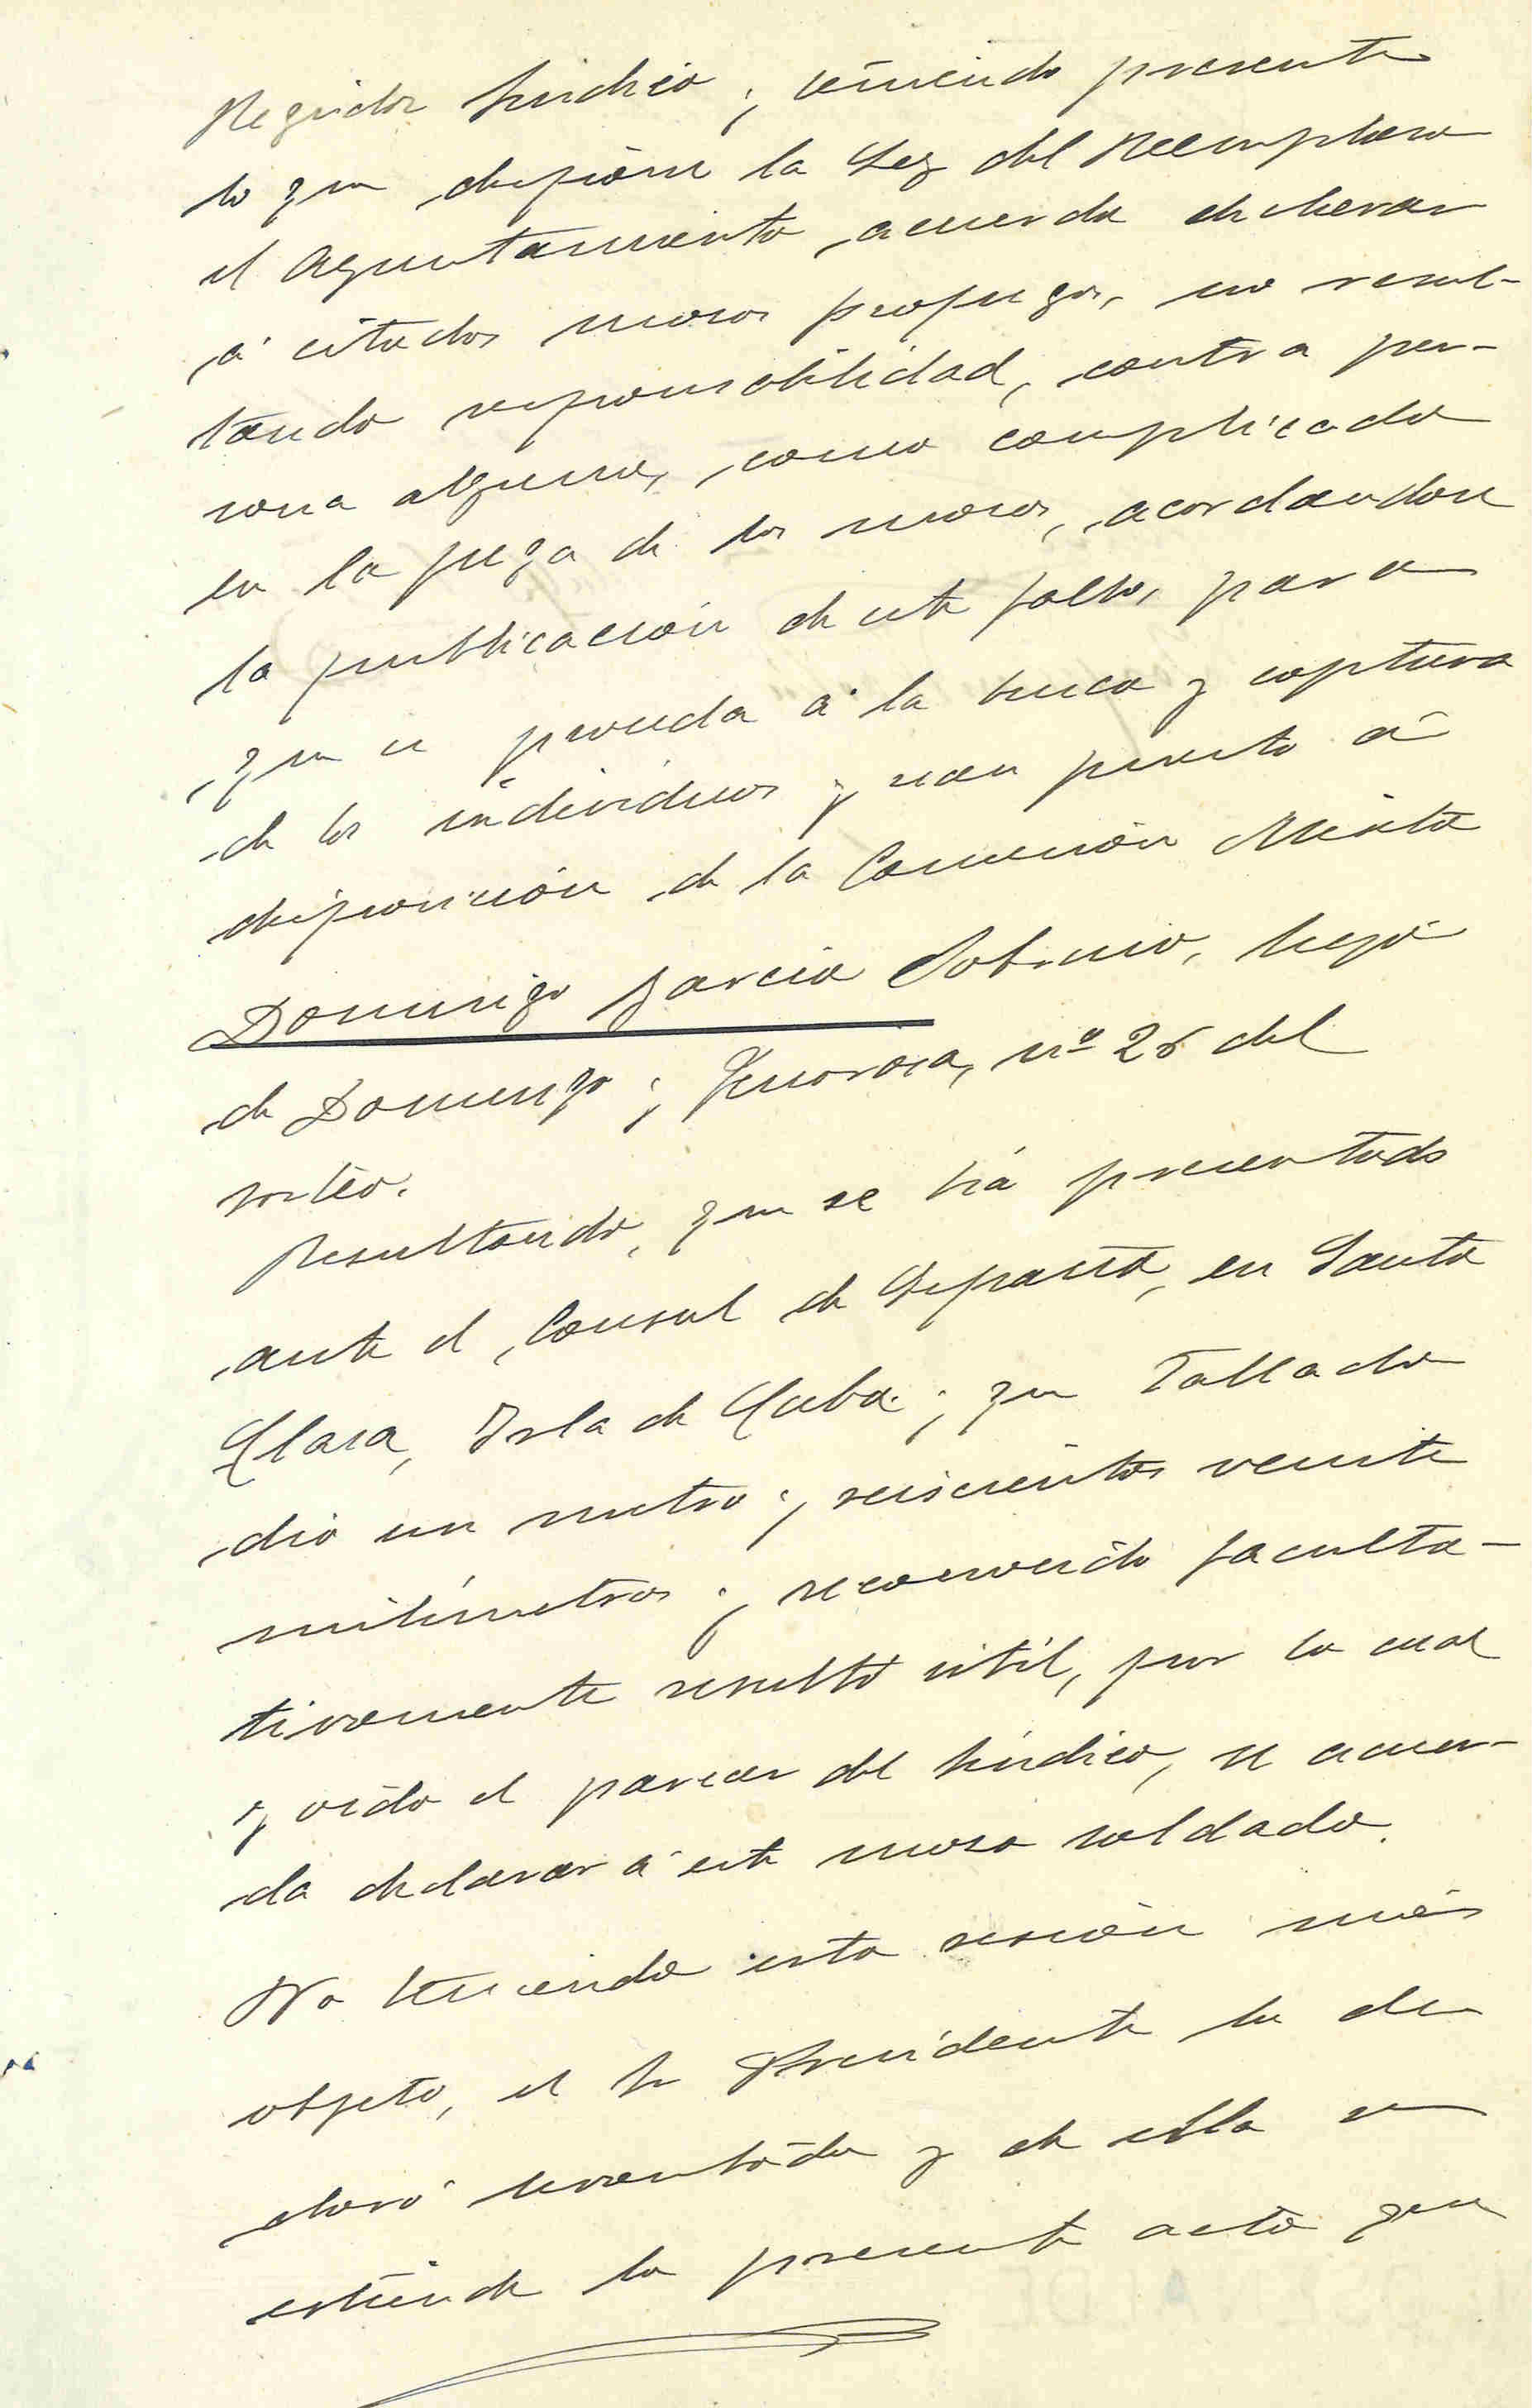 Regidor Sindico, y teniendo presente
lo que dispone la Ley del Reemplazo
el Ayuntamiento acuerda declarar
á citados mozos profugos, no resul-
tando responsabilidad, contra per-
sona alguna, como complicado
en la fuga de los mozos, acordandose
la publicación de este fallo, para
que se proceda á la busca y captura
de los individuos y sean puesto á
disposición de la Comisión Mixta
Domingo Garcia Sobrino, hijo
de Domingo y Genoveva, nº 26 del
sorteo.
Resultando, que se há presentado
ante el Consul de España, en Santa
Clara, Isla de Cuba y que Tallado
dio un metro y seiscientos veinte
milimetros y reconocido faculta-
tivamente resultó útil, por lo cual
y oido el parecer del Sindico, se acuer-
da declarar á este mozo soldado.
No teniendo esta sesión más
objeto, el Sr Presidente la de
claró levantada y de ella se
extiende la presente acta que